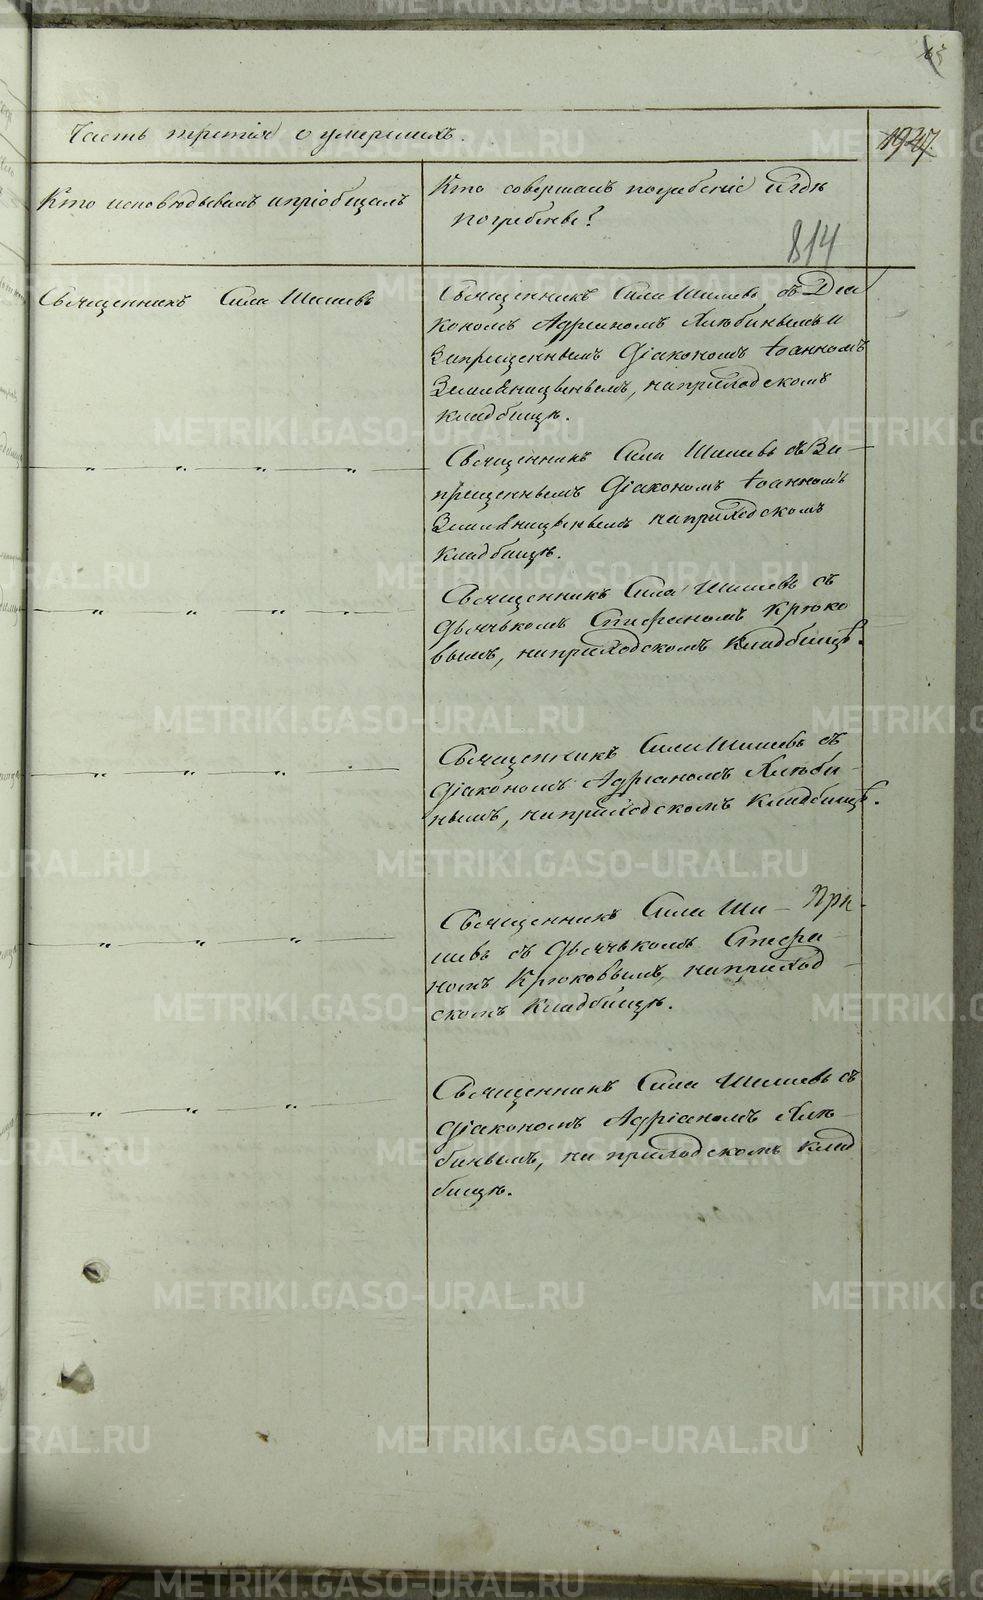 Часть третія о умершихъ.
1927
814
Кто исповѣдывалъ и пріобщалъ
Кто совершалъ погребеніе и гдѣ
погребены?
Священникъ Сила Шишевъ
Священникъ Сила Шишевъ съ Діа
кономъ Адріаномъ Хлюбинымъ и
Запрещеннымъ Діакономъ Іоанномъ
на приходскомъ
кладбищѣ.
Священникъ Сила Шишевъ съ За-
прещеннымъ Діакономъ Іоанномъ
на приходскомъ
кладбищѣ.
Священникъ Сила Шишевъ съ
дьячькомъ Стефаномъ Крюко
вымъ, на приходскомъ кладбищѣ.
Священникъ Сила Шишевъ съ
діакономъ Адріаномъ Хлюби-
нымъ, на приходскомъ кладбищѣ.
Священникъ Сила Ши-
шевъ съ дьячькомъ Стефа-
номъ Крюковымъ, на приход-
скомъ кладбищѣ.
Священникъ Сила Шишевъ съ
діакономъ Адріаномъ Хлю-
бинымъ, на приходскомъ клад
бищѣ.
METRIKI.GASO-URAL.RU